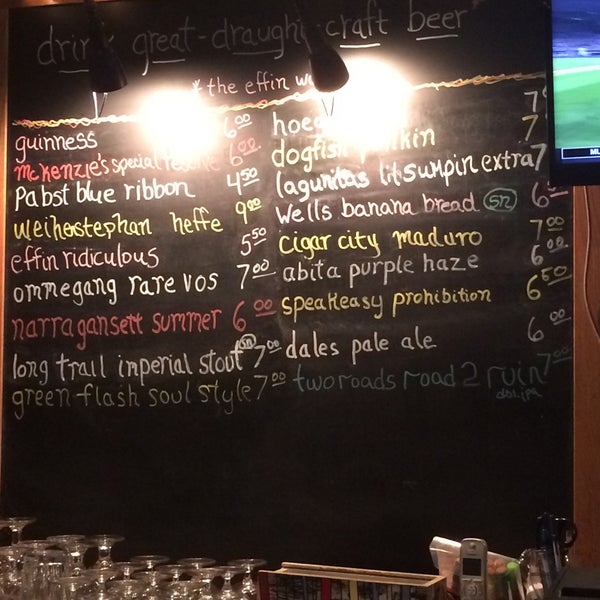 drink great-draught-craft beer
* the effin
guinness 6.00
mckenzie's special reserve 6.00
Pabst blue ribbon 4.50
weihenstephan heffe 9.00
effin ridiculous 5.50
ommegang rare vos 7.00
narragansett summer 6.00
long trail imperial stout 7.00
green flash soul style 7.00
7
dogfish 7
lagunitas lil sumpin extra 7
wells banana bread 6
cigar city maduro 7.00
abita purple haze 6.00
speakeasy prohibition 6.50
dales pale ale 6.00
two roads road 2 ruin 7.00
dbl.ipa
ML